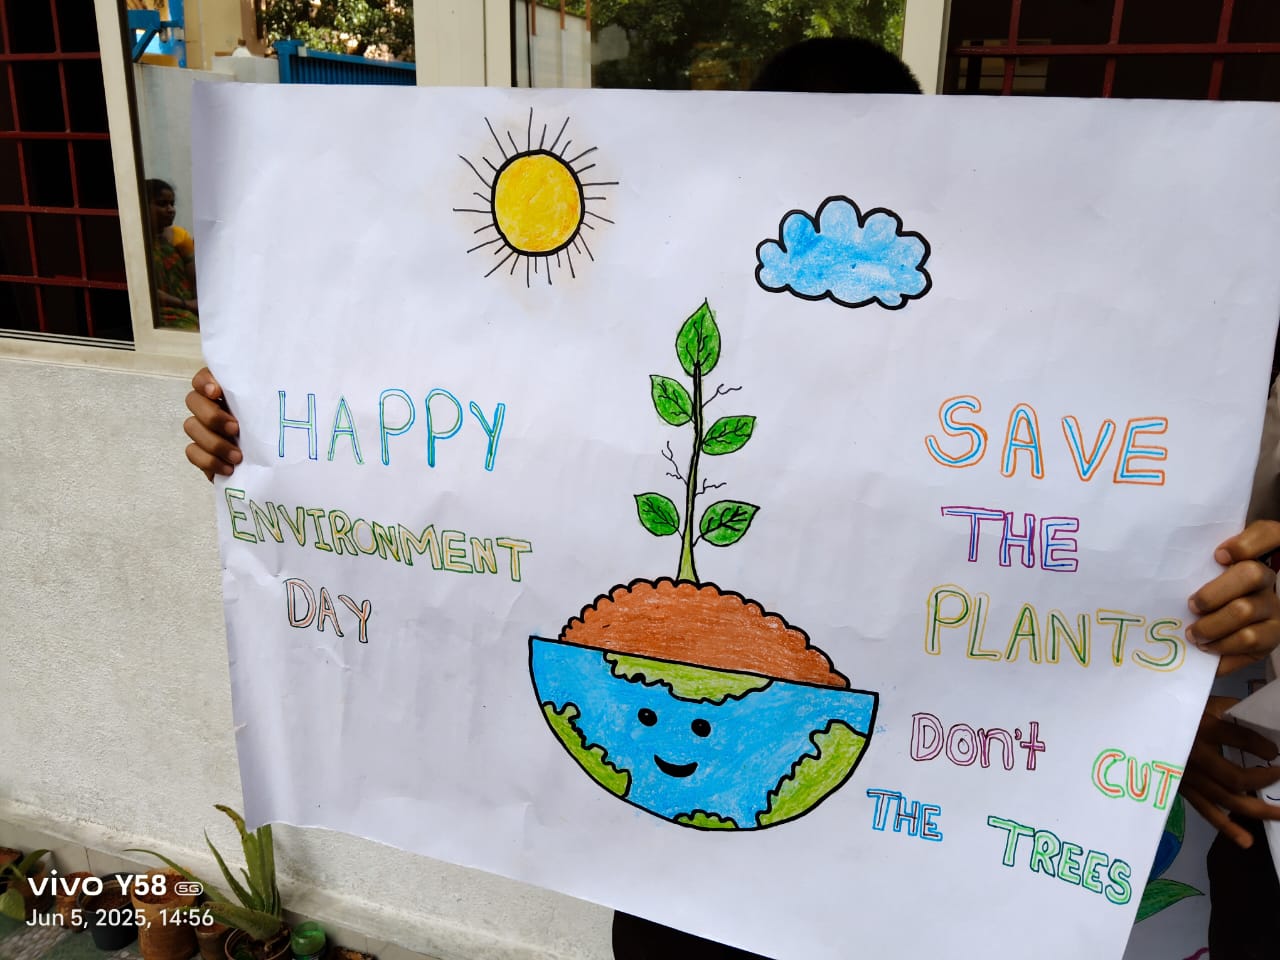 HAPPY
ENVIRONMENT
DAY
SAVE
THE
PLANTS
Don't CUT
THE TREES
vivo Y58 5G
Jun 5, 2025, 14:56